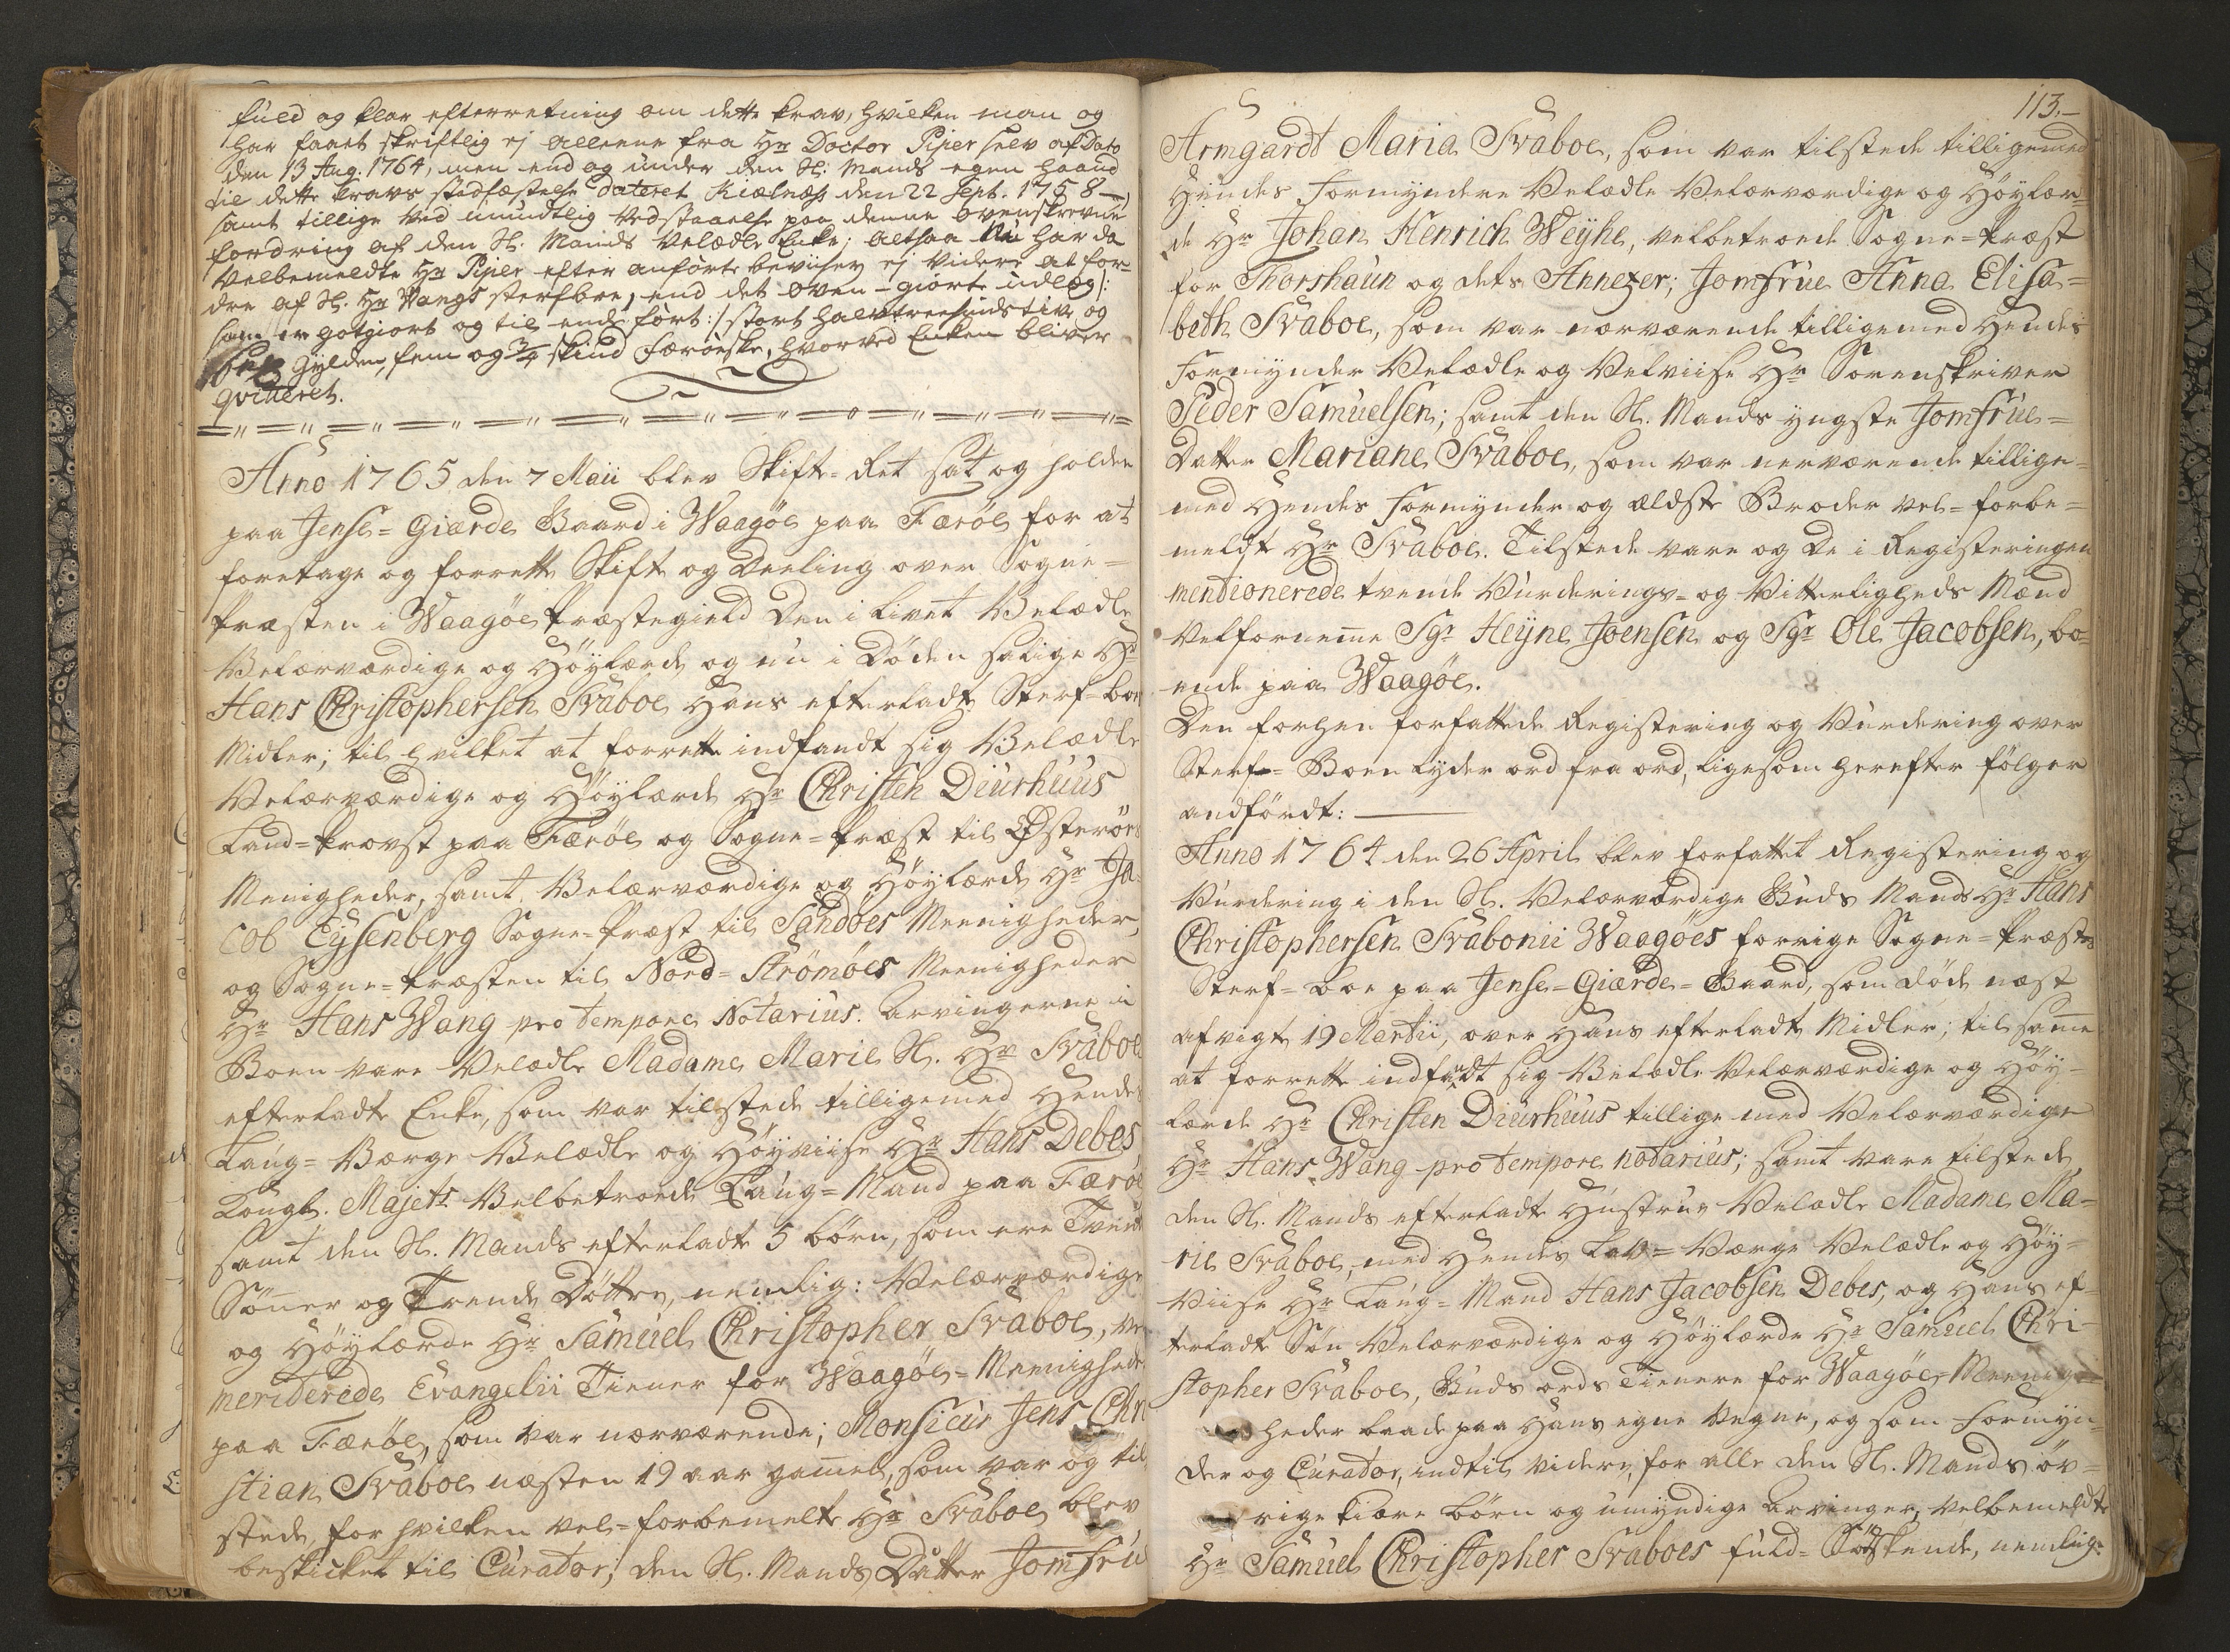 fuld og klar efterretning om dette krav, hvilken man og
har faaet skriftlig ej alleene fra Hr Doctor Pijper selv af Dato
den 13 Aug. 1764, men end og under den Sl: Mands egen Haand
til dette kravs stadfæstelse dateret Kielnæss den 22 Sept. 1758 —
samt tillige ved mundtlig vedstaaelse paa denne ovenskrevne
fordring af den Sl. Mands Velædle Enke; altsaa har da
velbemeldte Hr Pijper efter anførte beviiser ej videre at for-
dre af Sl. Hr Wangs sterfboe, end det oven-giorte udlæg/:
som er gotgiort og til ende ført:/ stort halvtreesindstive og
Gylden, fem og 3/4 skind Færöeske, hvorved Enken bliver
qvitteret.
Anno 1765 den 7 Maii blev Skifte-Ret sat og holden
paa Jense-Giærde Gaard i Waagöe paa Færöe for at
foretage og forrette Skifte og Deeling over Sogne-
Præsten i Waagöe Præstegield Den i livet Velædle
Velærværdige og Höylærde og nu i Döden salige Hr
Hans Christophersen Svaboe Hans efterladte Sterf-boes
Midler; til hvilket at forrette indfandt sig Velædle
Velærværdige og Höylærde Hr Christen Diurhuus
Land-Provst paa Færöe og Sogne-Præst til Österöes
Menigheder, samt Velærværdige og Höylærde Hr Ja-
cob Eysenberg Sogne-Præst til Sandöes Meenigheder,
og Sogne-Præsten til Nord-Strömöes Meenigheder
Hr Hans Wang pro tempore Notarius. Arvingerne i
Boen vare Velædle Madame Marie Sl. Hr Svaboe
efterladte Enke, som var tilstede tilligemed Hendes
Laug-Værge Velædle og Höyviise Hr Hans Debes,
Kongl. Majets Velbetroede Laug-Mand paa Færöe
samt den Sl. Mands efterladte 5 börn, som ere Tvende
Sönner og Trende Döttre, nemlig: Velærværdige
og Höylærde Hr Samuel Christopher Svaboe, ve
meriterede Evangelii Tiener for Waagöe-Meenigheder
paa Færöe, som var nærværende; Monsieur Jens Chri
stian Svaboe næsten 19 aar gammel, som var og til
stede, for hvilken vel-forbemelte Hr Svaboe blev
beskicket til Curator; den Sl. Mands Datter Jomfrue
113.—
Armgardt Maria Svaboe, som var tilstede tilligemed
Hendes Formyndere Velædle Velærværdige og Höylær-
de Hr Johan Henrich Weyhe, velbetroede Sogne-Præst
for Thorshaun og dets Annexer; Jomfrue Anna Elisa-
beth Svaboe, som var nærværende tilligemed Hendes
Formynder Velædle og Velviise Hr Sorenskriver
Peder Samuelsen; samt den Sl. Mands yngste Jomfrue-
Datter Mariane Svaboe, som var nerværende tillige-
med Hendes Formynder og ældste Broder vel-forbe-
meldte Hr Svaboe. Tilstede vare og de i Registeringen
mentionerede tvende Vurderings- og Vitterligheds Mænd
Velfornemme Sgr Heyne Joensen og Sgr Ole Jacobsen, bo-
ende paa Waagöe.
Den forhen forfattede Registering og Vurdering over
Sterf-Boen lyder ord fra ord, ligesom herefter fölger
andfördt: ———
Anno 1764 den 26 April blev forfattet Registering og
Vurdering i den Sl. Velærværdige Guds Mands Hr Hans
Christophersen Svabonii Waagöes forrige Sogne-Præstes
Sterf-boe paa Jense-Giærde-Gaard, som döde næst
afvigte 19 Martii, over Hans efterladte Midler; til samme
at forrette indfandt sig Velædle Velærværdige og Höy-
lærde Hr Christen Diurhuus tillige med Velærværdige
Hr Hans Wang pro tempore notarius; samt vare tilstede
den Sl. Mands efterladte Hustrue Velædle Madame Ma-
rie Svaboe, med Hendes Lav-Værge Velædle og Höy-
viise Hr Laug-Mand Hans Jacobsen Debes, og Hans ef-
terladte Sön Velærværdige og Höylærde Hr Samuel Chri-
stopher Svaboe, Guds ords Tienere for Waagöe Meenig-
heder baade paa Hans egne vegne, og som Formyn-
der og Curator, indtil videre, for alle den Sl. Mands öv-
rige kiære börn og umyndige Arvinger, velbemeldte
Hr Samuel Christopher Svaboes fuld-Södskende, nemlig: